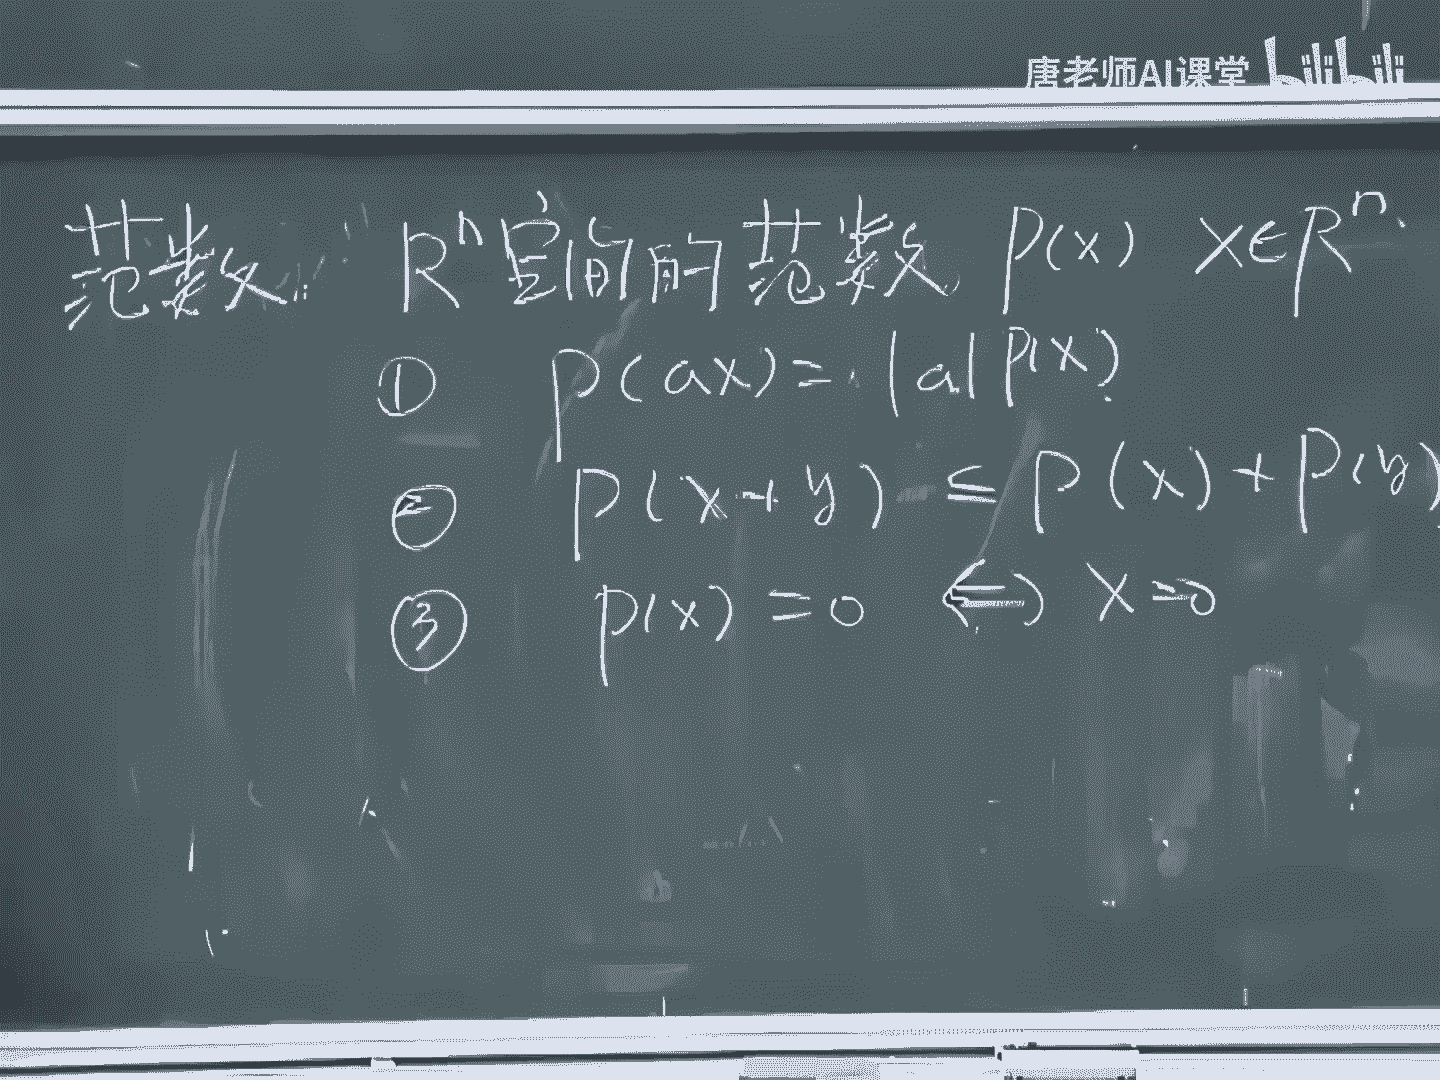 唐老师AI课堂 bilibili
范数: Rⁿ空间的范数 P(x) X∈Rⁿ.
① P(ax) = |a| P(x)
② P(x+y) ≤ P(x) + P(y)
③ P(x) = 0 ⇔ X=0